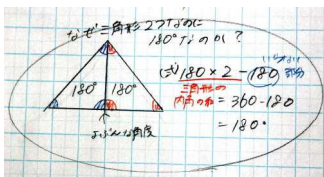 なぜ三角形2つなのに
180°なのか?
180° 180°
よぶんな角度
(式) 180×2-180
三角形の
内角の和
=360-180
=180°